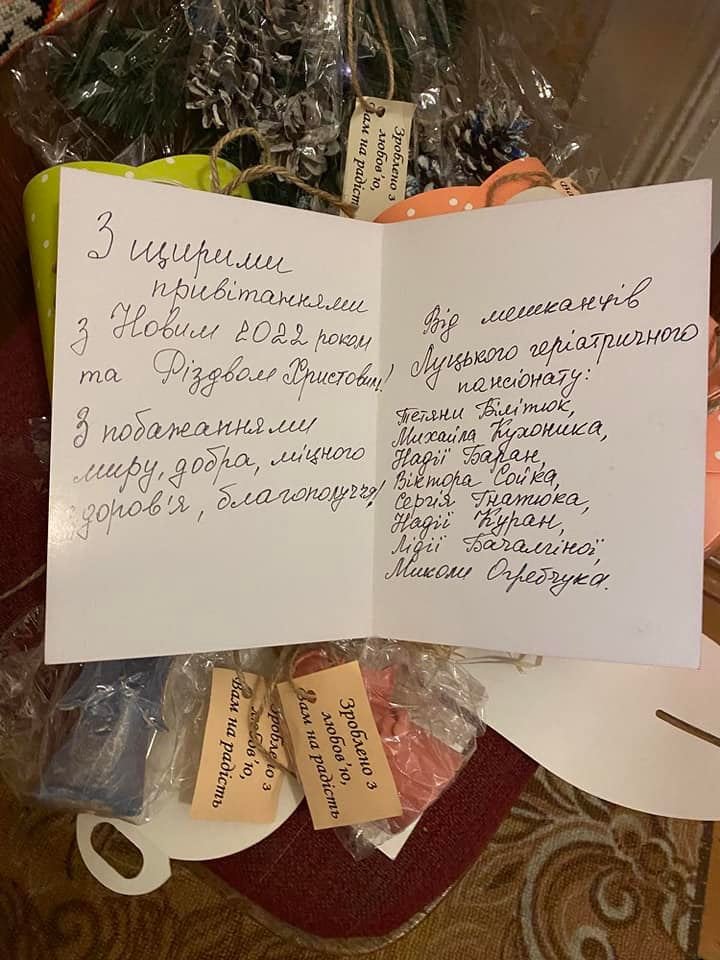 Зроблено з
любов'ю,
Вам на радість
З щирими
привітаннями
з Новим 2022 роком
та Різдвом Христовим!
З побажаннями
миру, добра, міцного
здоров'я, благополуччя!
Від мешканців
Луцького геріатричного
пансіонату:
Тетяни Білітюк,
Михайла Кухоника,
Надії Баран,
Віктора Сойка,
Сергія Гнатюка,
Надії Куран,
Лідії Бачалгіної,
Миколи Огребчука.
Зроблено з
любов'ю,
Вам на радість
Зроблено з
любов'ю,
Вам на радість